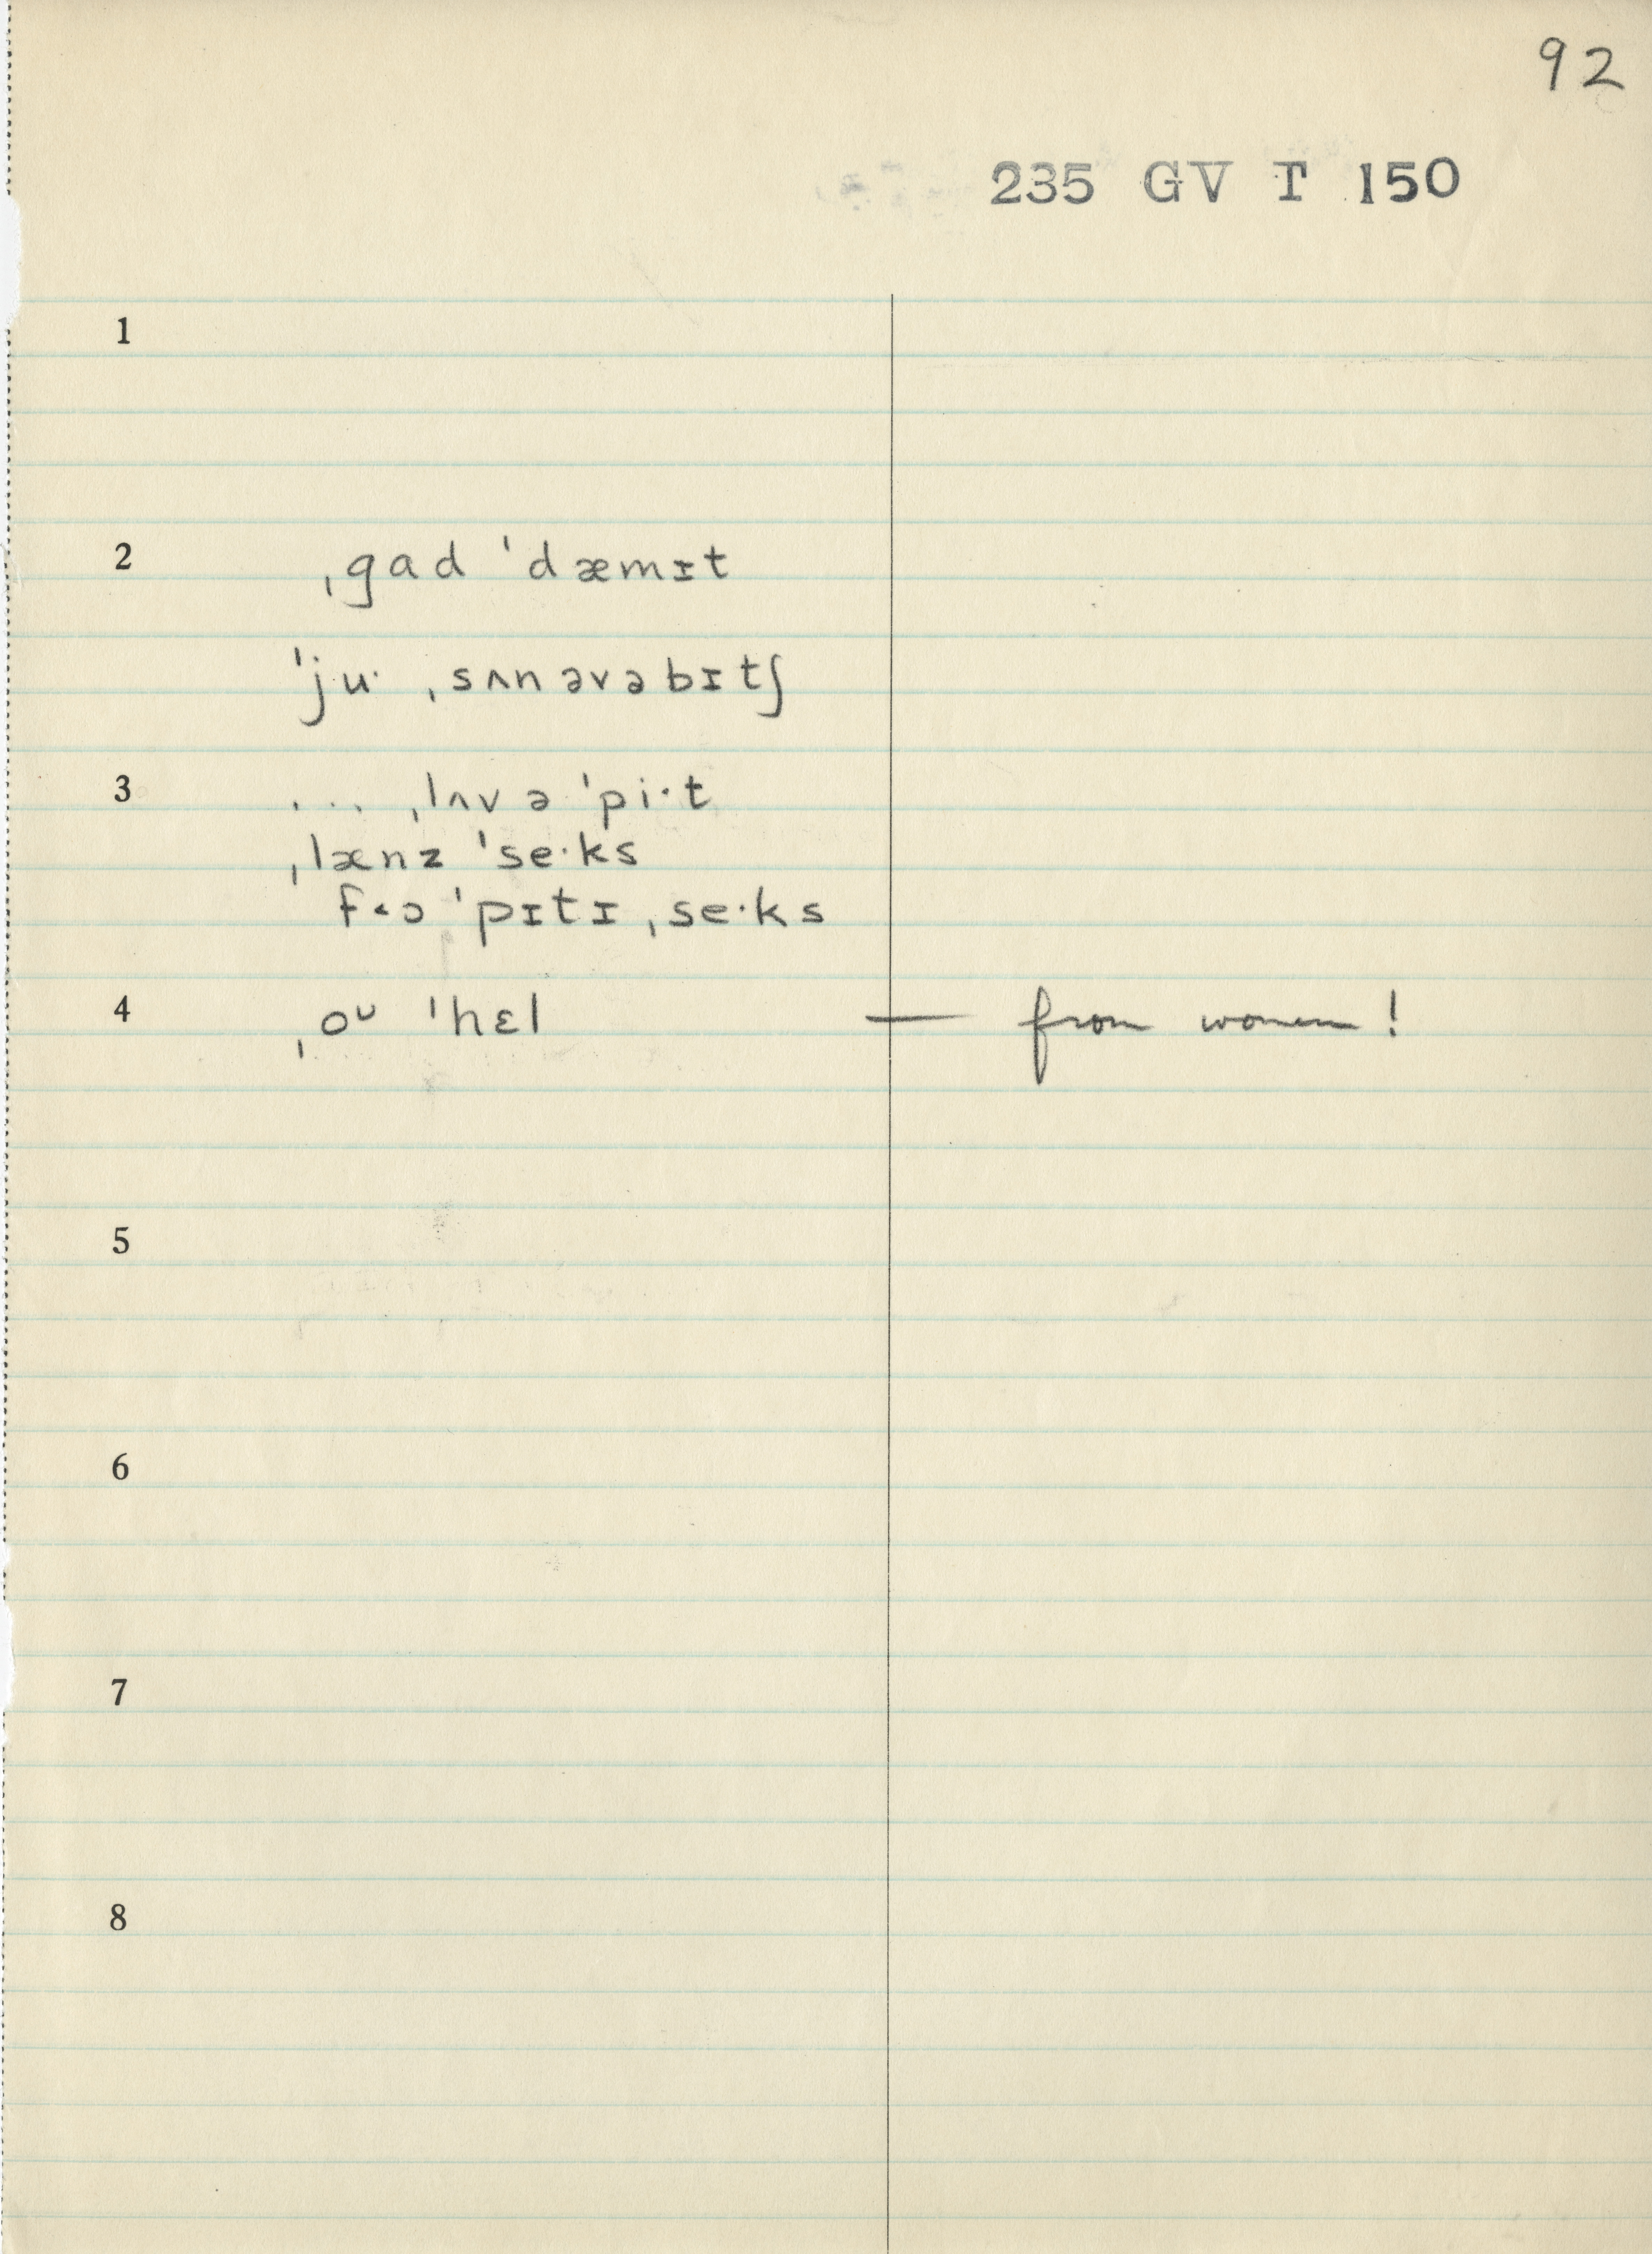 92
235 GV T 150
1
2 ˌgad ˈdæmɪt
ˈju· ˌsʌnəvəbɪtʃ
3 ... ˌlʌv ə ˈpi·t
ˌlænz ˈse·ks
ˈpɪtɪ ˌse·ks
4 ˌoᴜ ˈhɛl — from women!
5
6
7
8